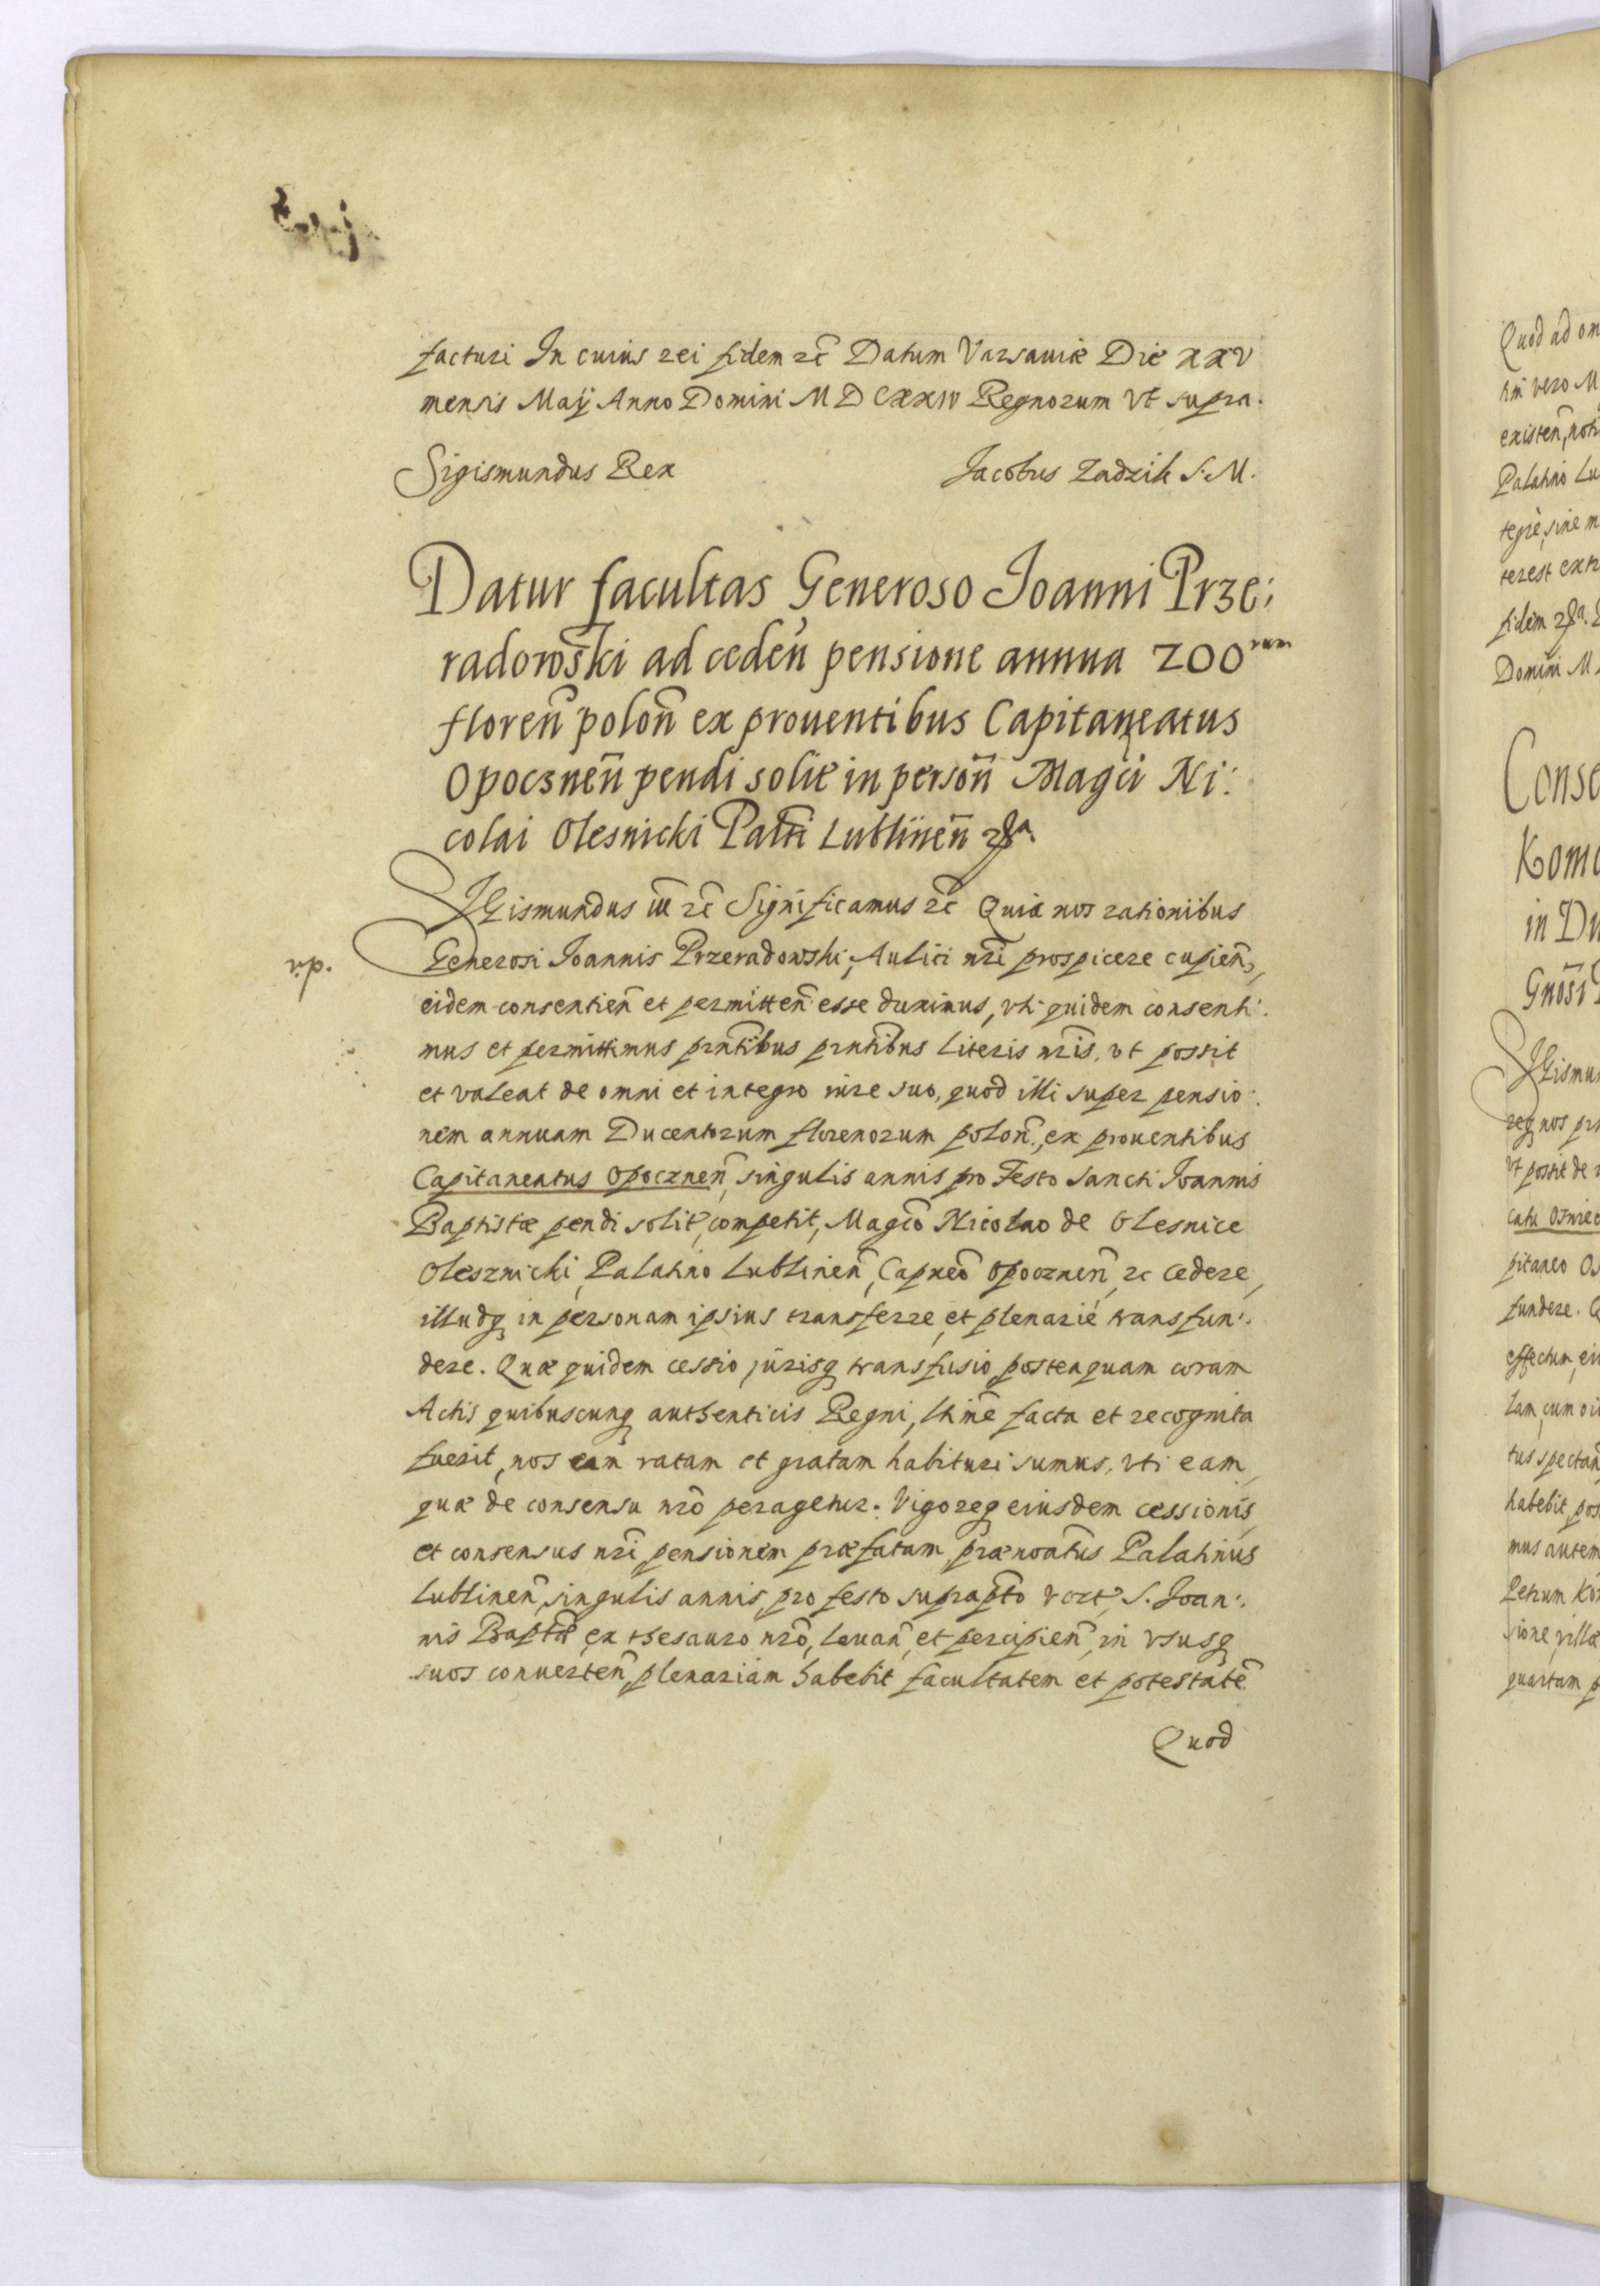 facturi In cuius rei fidem zc̃ Datum Varsauiæ Die XXV
mensis Maÿ Anno Domini MDCXXIV Regnorum Vt supra.
Sigismundus Rex Jacobus Zadzik S. M.
Datur facultas Generoso Joanni Prze:
radows̃ki ad cedeñ pensione annua 200rum
floreñ poloñ ex prouentibus Capitaneatus
Opoczneñ pendi solit in persoñ Magci Ni:
colai Olesnicki Palñi Lublineñ
SIGismundus III zc̃ Significamus zc̃ Quia nos rationibus
v.p.
Generosi Joannis Przeradowski, Aulici nr̃i prospicere cupieñ,
eidem consentieñ et permitteñ esse duximus, vti quidem consenti:
mus et permittimus prñtibus prñtibus literis nr̃is, vt possit
et valeat de omni et integro iure suo, quod illi super pensio:
nem annuam Ducentorum florenorum poloñ, ex prouentibus
Capitaneatus Opoczneñ, singulis annis pro Festo Sancti Joannis
Baptistæ pendi solit, competit, Magco Nicolao de Olesnice
Olesznicki, Palatino Lublineñ, Capneo Opoczneñ, zc cedere,
illudq̃ in personam ipsius transferre, et plenarié transfun:
dere. Quæ quidem cessio, jurisq̃ transfusio, posteaquam coram
Actis quibuscunq̃ authenticis Regni, ltime facta et recognita
fuerit, nos eam ratam et gratam habituri sumus, vti eam,
quæ de consensu nr̃o peragetur. Vigoreq̃ eiusdem cessionis,
et consensus nr̃i pensionem præfatam, prænoatus Palatinus
Lublineñ, singulis annis, pro festo suprapto S. Joan:
nis Baptæ ex thesauro nr̃o, leuañ, et percipieñ, in vsusq̃
suos conuerteñ, plenariam habebit facultatem et potestatẽ
Quod